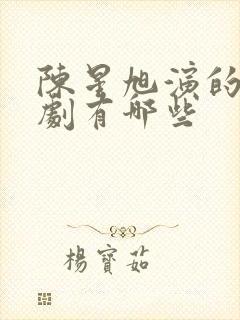 陳星旭演的
劇有哪些
楊寶茹